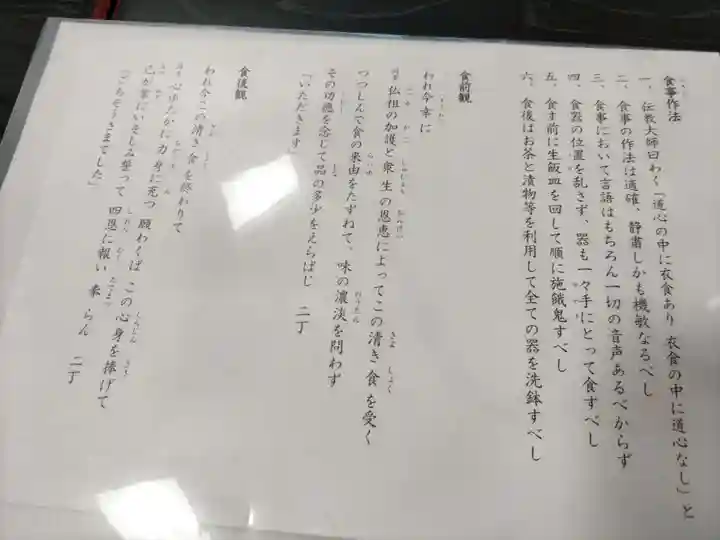 食事作法
一、伝教大師曰わく「道心の中に衣食あり 衣食の中に道心なし」と
二、食事の作法は適確、静粛しかも機敏なるべし
三、食事において言語はもちろん一切の音声あるべからず
四、食器の位置を乱さず、器も一々手にとって食すべし
五、食す前に生飯皿を回して順に施餓鬼すべし
六、食後はお茶と漬物等を利用して全ての器を洗鉢すべし
食前観
われ今幸に
仏祖の加護と衆生の恩恵によってこの清き食を受く
つつしんで食の来由をたずねて、味の濃淡を問わず
その功徳を念じて品の多少をえらばじ 二丁
「いただきます」
食後観
われ今この清き食を終わりて
心ゆたかに力身に充つ 願わくば この心身を捧げて
己が業にいそしみ誓って 四恩に報い奉らん 二丁
「ごちそうさまでした」